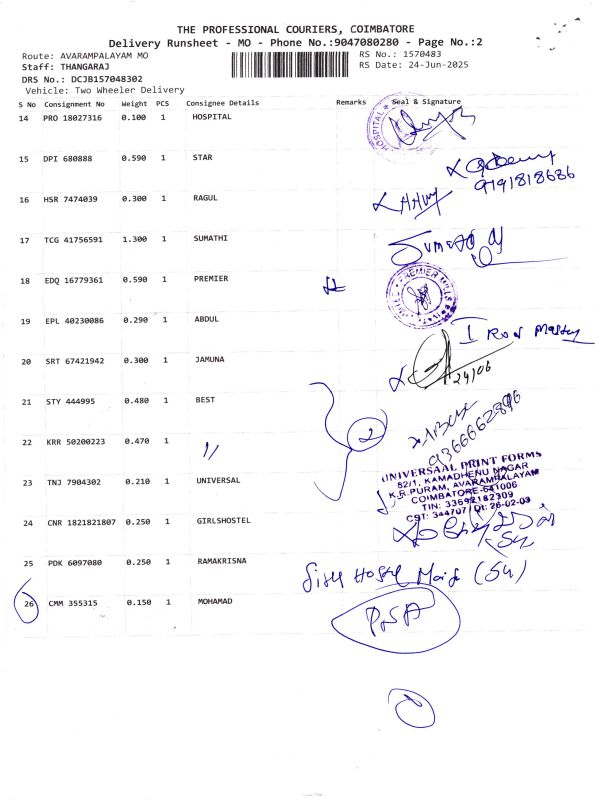 THE PROFESSIONAL COURIERS, COIMBATORE
Delivery Runsheet - MO - Phone No.:9047080280 - Page No.:2
Route: AVARAMPALAYAM MO
RS No.: 1570483
Staff: THANGARAJ
RS Date: 24-Jun-2025
DRS No.: DCJB157048302
Vehicle: Two Wheeler Delivery
S No Consignment No Weight PCS Consignee Details Remarks Seal & Signature
14 PRO 18027316 0.100 1 HOSPITAL
HOSPITAL
15 DPI 680888 0.590 1 STAR
9191818686
16 HSR 7474039 0.300 1 RAGUL
17 TCG 41756591 1.300 1 SUMATHI
18 EDQ 16779361 0.590 1 PREMIER
PREMIER MILLS
19 EPL 40230086 0.290 1 ABDUL
20 SRT 67421942 0.300 1 JAMUNA
24/06
21 STY 444995 0.480 1 BEST
2
22 KRR 50200223 0.470 1 "
UNIVERSAAL PRINT FORMS
82/1, KAMADHENU NAGAR
K.R.PURAM, AVARAMPALAYAM
COIMBATORE-641006
TIN: 33692182309
CST: 344707 / Dt: 26-02-03
23 TNJ 7904302 0.210 1 UNIVERSAL
24 CNR 1821821807 0.250 1 GIRLSHOSTEL
25 PDK 6097080 0.250 1 RAMAKRISNA
26 CMM 355315 0.150 1 MOHAMAD